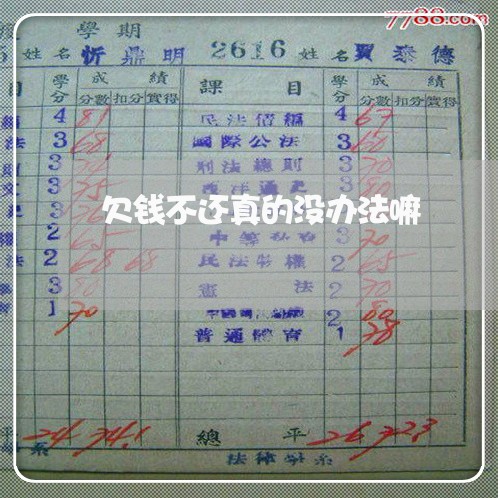 7788.com
學期
姓名 忻鼎明 2616 姓名 賈泰德
目 學分 成績 課目 學分 成績
分數 扣分 實得 分數 扣分 實得
4 81 民法債編 4 67
法 3 68 國際公法 3 60
3 刑法總則 3 70
3 75 西洋通史 3 80
欠钱不还真的没办法嘛
2 65 3 70
法 2 68 68 民法物權 2 65
3 80 憲法 2 70
1 70 2 80
普通體育 1 78
平 24 74.1 總平 26 72.3
系 法律學系